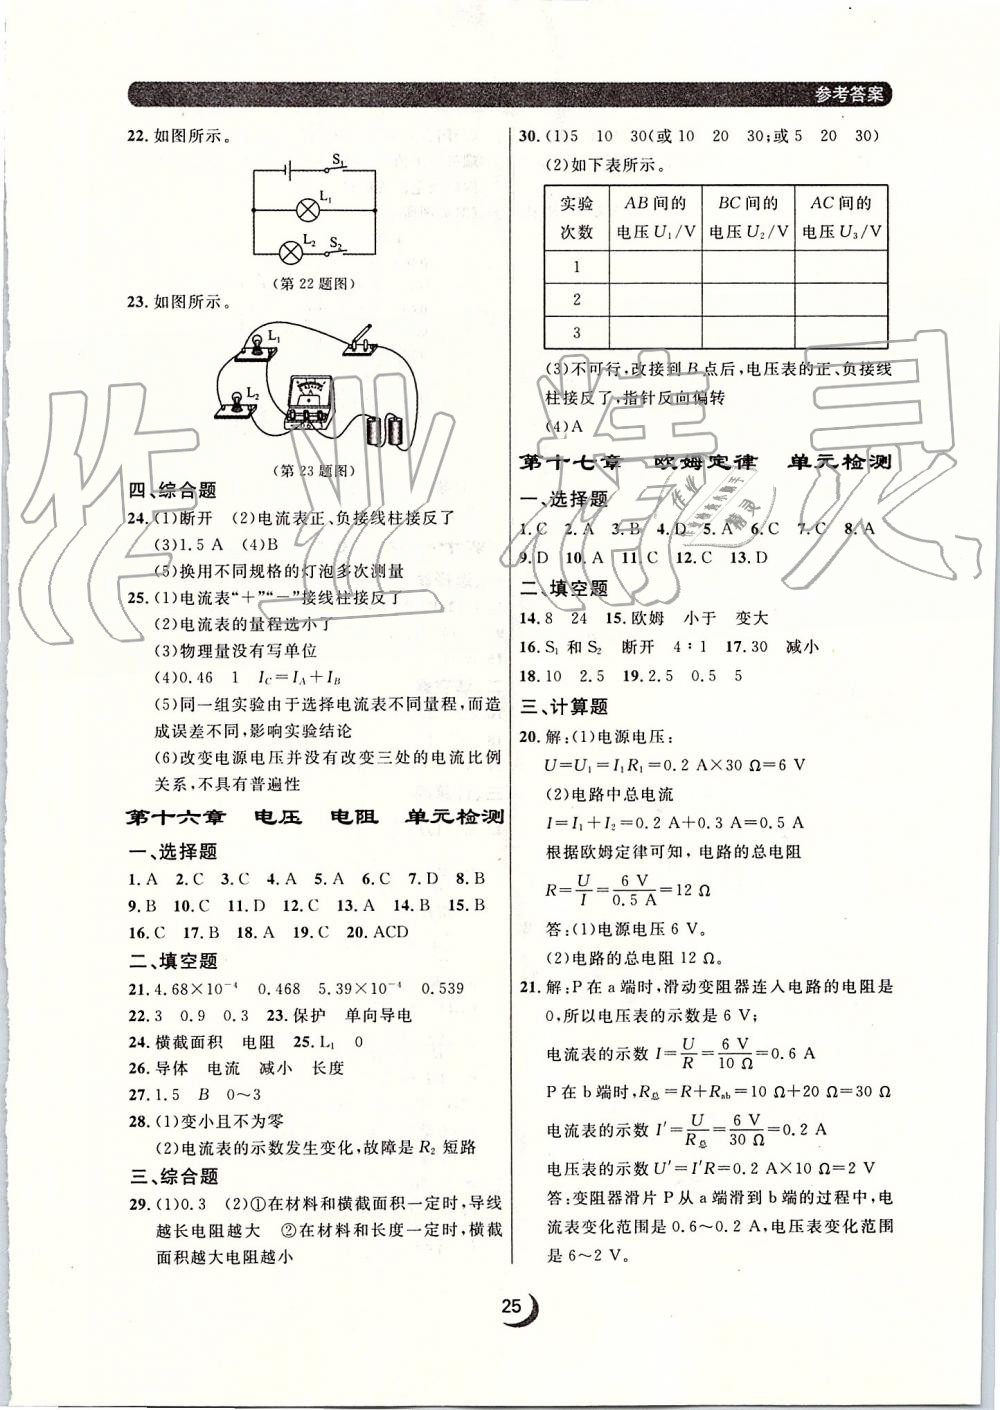 参考答案
22.如图所示。
S₁
L₁
L₂
S₂
(第22题图)
23.如图所示。
L₁
L₂
(第23题图)
四、综合题
24.(1)断开　(2)电流表正、负接线柱接反了
(3)1.5 A　(4)B
(5)换用不同规格的灯泡多次测量
25.(1)电流表“＋”“－”接线柱接反了
(2)电流表的量程选小了
(3)物理量没有写单位
(4)0.46　1　I_C＝I_A＋I_B
(5)同一组实验由于选择电流表不同量程,而造
成误差不同,影响实验结论
(6)改变电源电压并没有改变三处的电流比例
关系,不具有普遍性
第十六章　电压　电阻　单元检测
一、选择题
1.A　2.C　3.C　4.A　5.A　6.C　7.D　8.B
9.B　10.C　11.D　12.C　13.A　14.B　15.B
16.C　17.B　18.A　19.C　20.ACD
二、填空题
21.4.68×10⁻⁴　0.468　5.39×10⁻⁴　0.539
22.3　0.9　0.3　23.保护　单向导电
24.横截面积　电阻　25.L₁　0
26.导体　电流　减小　长度
27.1.5　B　0～3
28.(1)变小且不为零
(2)电流表的示数发生变化,故障是R₂短路
三、综合题
29.(1)0.3　(2)①在材料和横截面积一定时,导线
越长电阻越大　②在材料和长度一定时,横截
面积越大电阻越小
30.(1)5　10　30(或10　20　30;或5　20　30)
(2)如下表所示。
实验次数　AB间的电压U₁/V　BC间的电压U₂/V　AC间的电压U₃/V
1
2
3
(3)不可行,改接到B点后,电压表的正、负接线
柱接反了,指针反向偏转
(4)A
第十七章　欧姆定律　单元检测
一、选择题
1.C　2.A　3.B　4.D　5.A　6.C　7.C　8.A
9.D　10.A　11.C　12.C　13.D
二、填空题
14.8　24　15.欧姆　小于　变大
16.S₁和S₂　断开　4∶1　17.30　减小
18.10　2.5　19.2.5　0.5　5
三、计算题
20.解:(1)电源电压:
U＝U₁＝I₁R₁＝0.2 A×30 Ω＝6 V
(2)电路中总电流
I＝I₁＋I₂＝0.2 A＋0.3 A＝0.5 A
根据欧姆定律可知,电路的总电阻
R＝U/I＝6 V/0.5 A＝12 Ω
答:(1)电源电压6 V。
(2)电路的总电阻12 Ω。
21.解:P在a端时,滑动变阻器连入电路的电阻是
0,所以电压表的示数是6 V;
电流表的示数I＝U/R＝6 V/10 Ω＝0.6 A
P在b端时,R总＝R＋R_ab＝10 Ω＋20 Ω＝30 Ω
电流表的示数I′＝U/R总＝6 V/30 Ω＝0.2 A
电压表的示数U′＝I′R＝0.2 A×10 Ω＝2 V
答:变阻器滑片P从a端滑到b端的过程中,电
流表变化范围是0.6～0.2 A,电压表变化范围
是6～2 V。
25
作业精灵